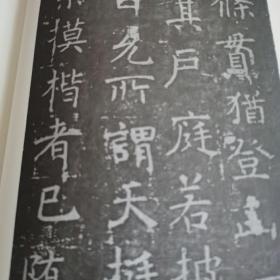 條貫猶澄
其戶庭若披
日允所謂天挺
摸楷者已随